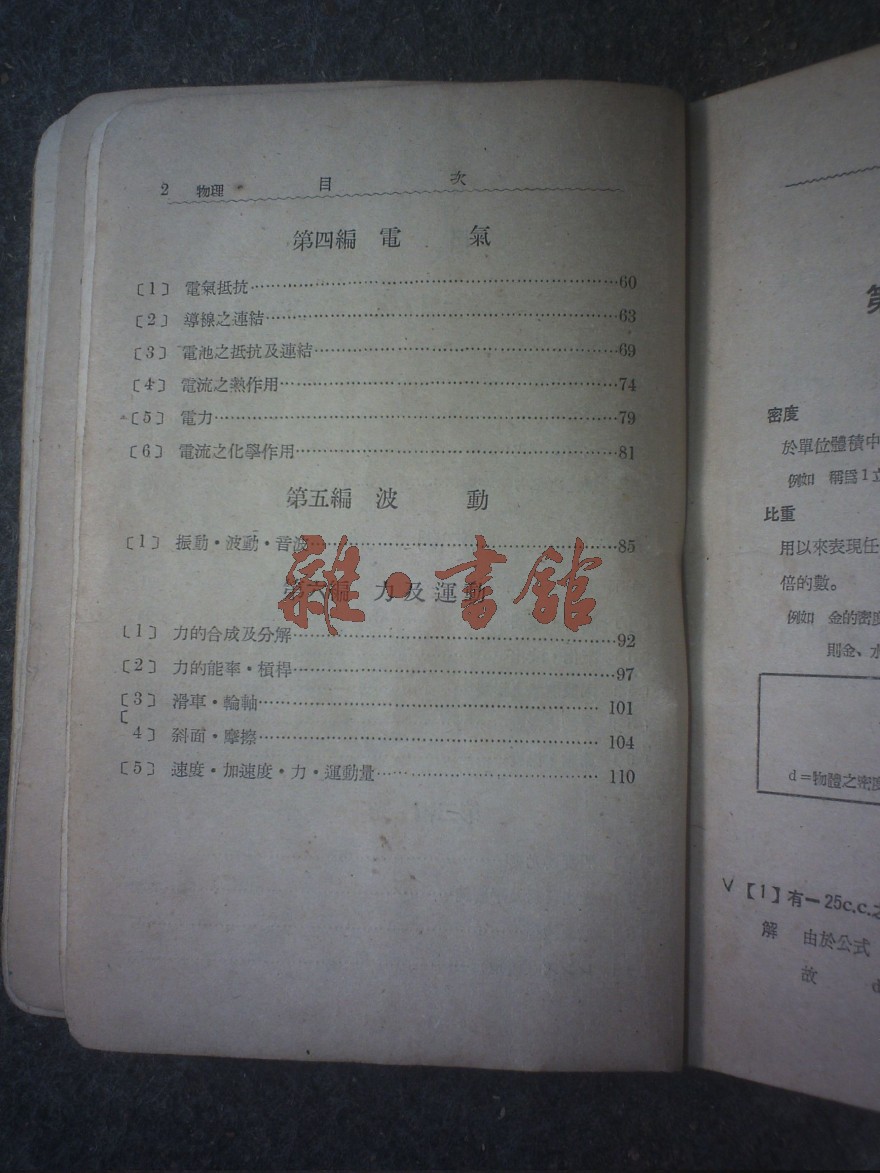 2 物理 目 次
第四編 電 氣
〔1〕 電氣抵抗……60
〔2〕 導線之連結……63
〔3〕 電池之抵抗及連結……69
〔4〕 電流之熱作用……74
〔5〕 電力……79
〔6〕 電流之化學作用……81
第五編 波 動
〔1〕 振動・波動・音波……85
雜・書館
第六編 力及運動
〔1〕 力的合成及分解……92
〔2〕 力的能率・槓桿……97
〔3〕 滑車・輪軸…… 101
〔
4〕 斜面・摩擦…… 104
〔5〕 速度・加速度・力・運動量…… 110
第
密度
於單位體積中
例如 稱爲1立
比重
用以來表現任
倍的數。
例如 金的密度
則金、水
d=物體之密度
∨【1】有一25c.c.之
解 由於公式
故 d